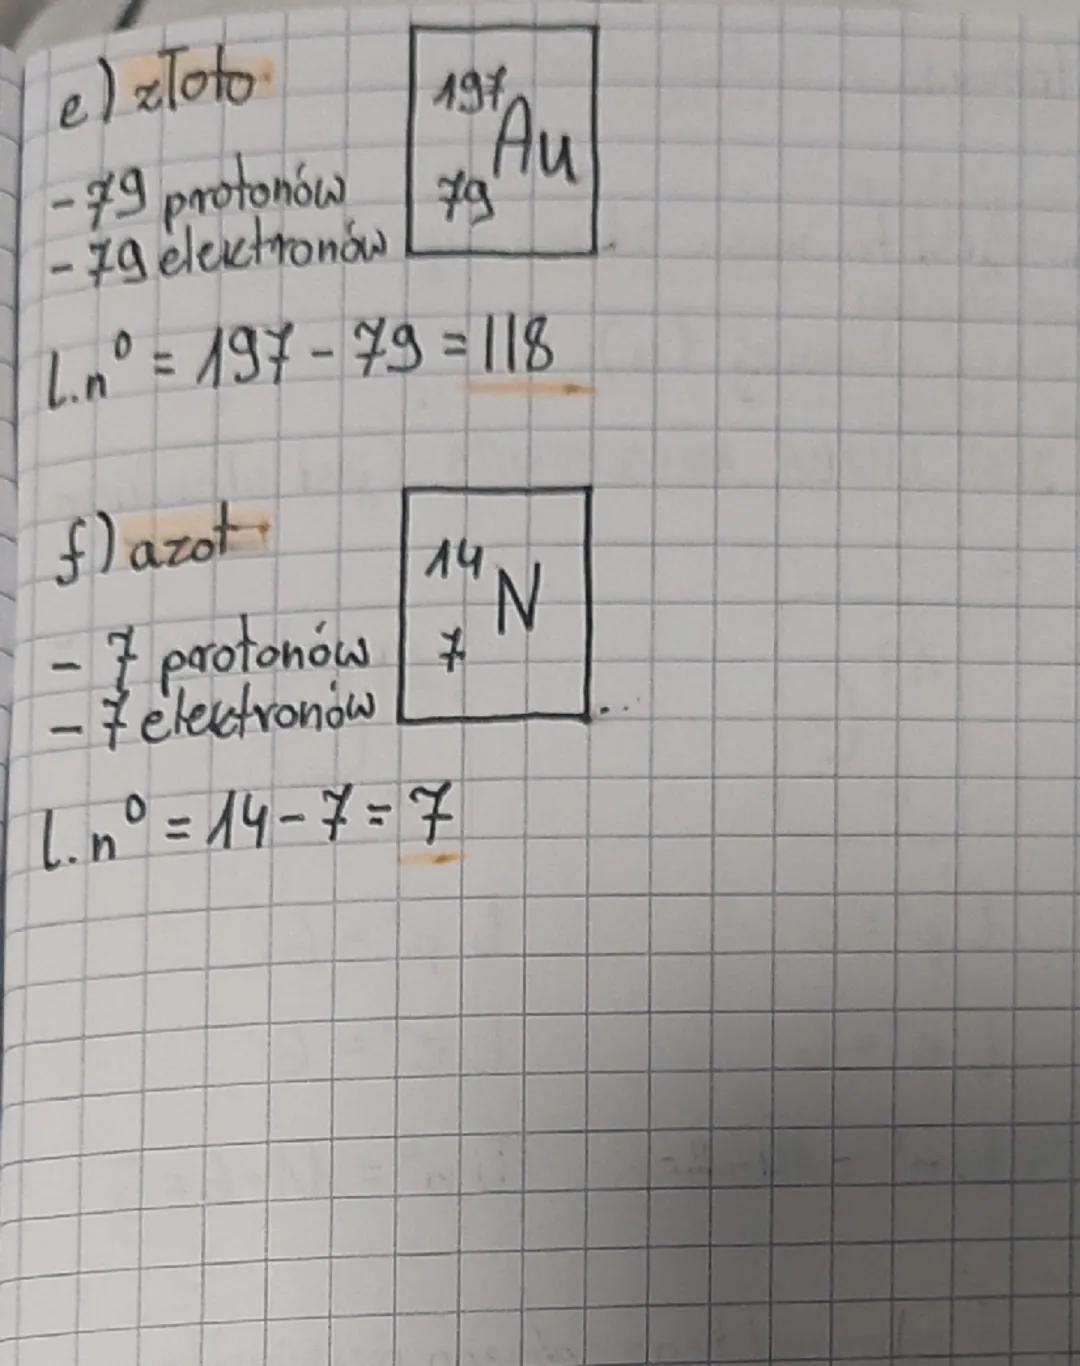 e) złoto
197
Au
79
- 79 protonów
- 79 elektronów
l.n⁰ = 197 - 79 = 118
f) azot
14
N
7
- 7 protonów
- 7 elektronów
l.n⁰ = 14 - 7 = 7